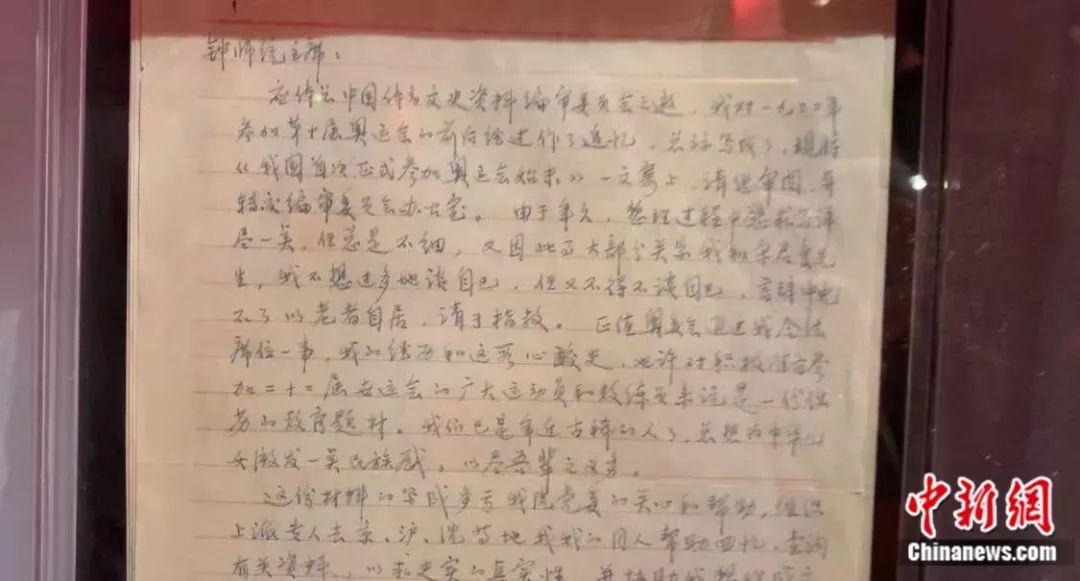 钟师统主席：
应体总中国体育文史资料编审委员会之邀，我对一九三二年
参加第十届奥运会的前后经过作了追忆，总算写成了，现将
《我国首次正式参加奥运会始末》一文寄上，请您审阅，并
转交编审委员会办公室。由于年久，整理过程中想求写详
尽一点，但总是不细，又因此事大部分关系我和宋君复先
生，我不想过多地谈自己，但又不得不谈自己，言辞中免
不了以老者自居，请予指教。正值奥委会通过我合法
席位一事，我的经历和这段心酸史，也许对积极准备参
加二十二届奥运会的广大运动员和教练员来说是一份很
好的教育题材。我们已是年近古稀的人了，总想为中华儿
女激发一点民族感，以尽吾辈之义务。
这份材料的写成多亏我院党委的关心和帮助，组织
上派专人去京、沪、沈等地找我的同人帮助回忆，查询
有关资料，以求史实的真实性，并协助我整理成
中新網
Chinanews.com